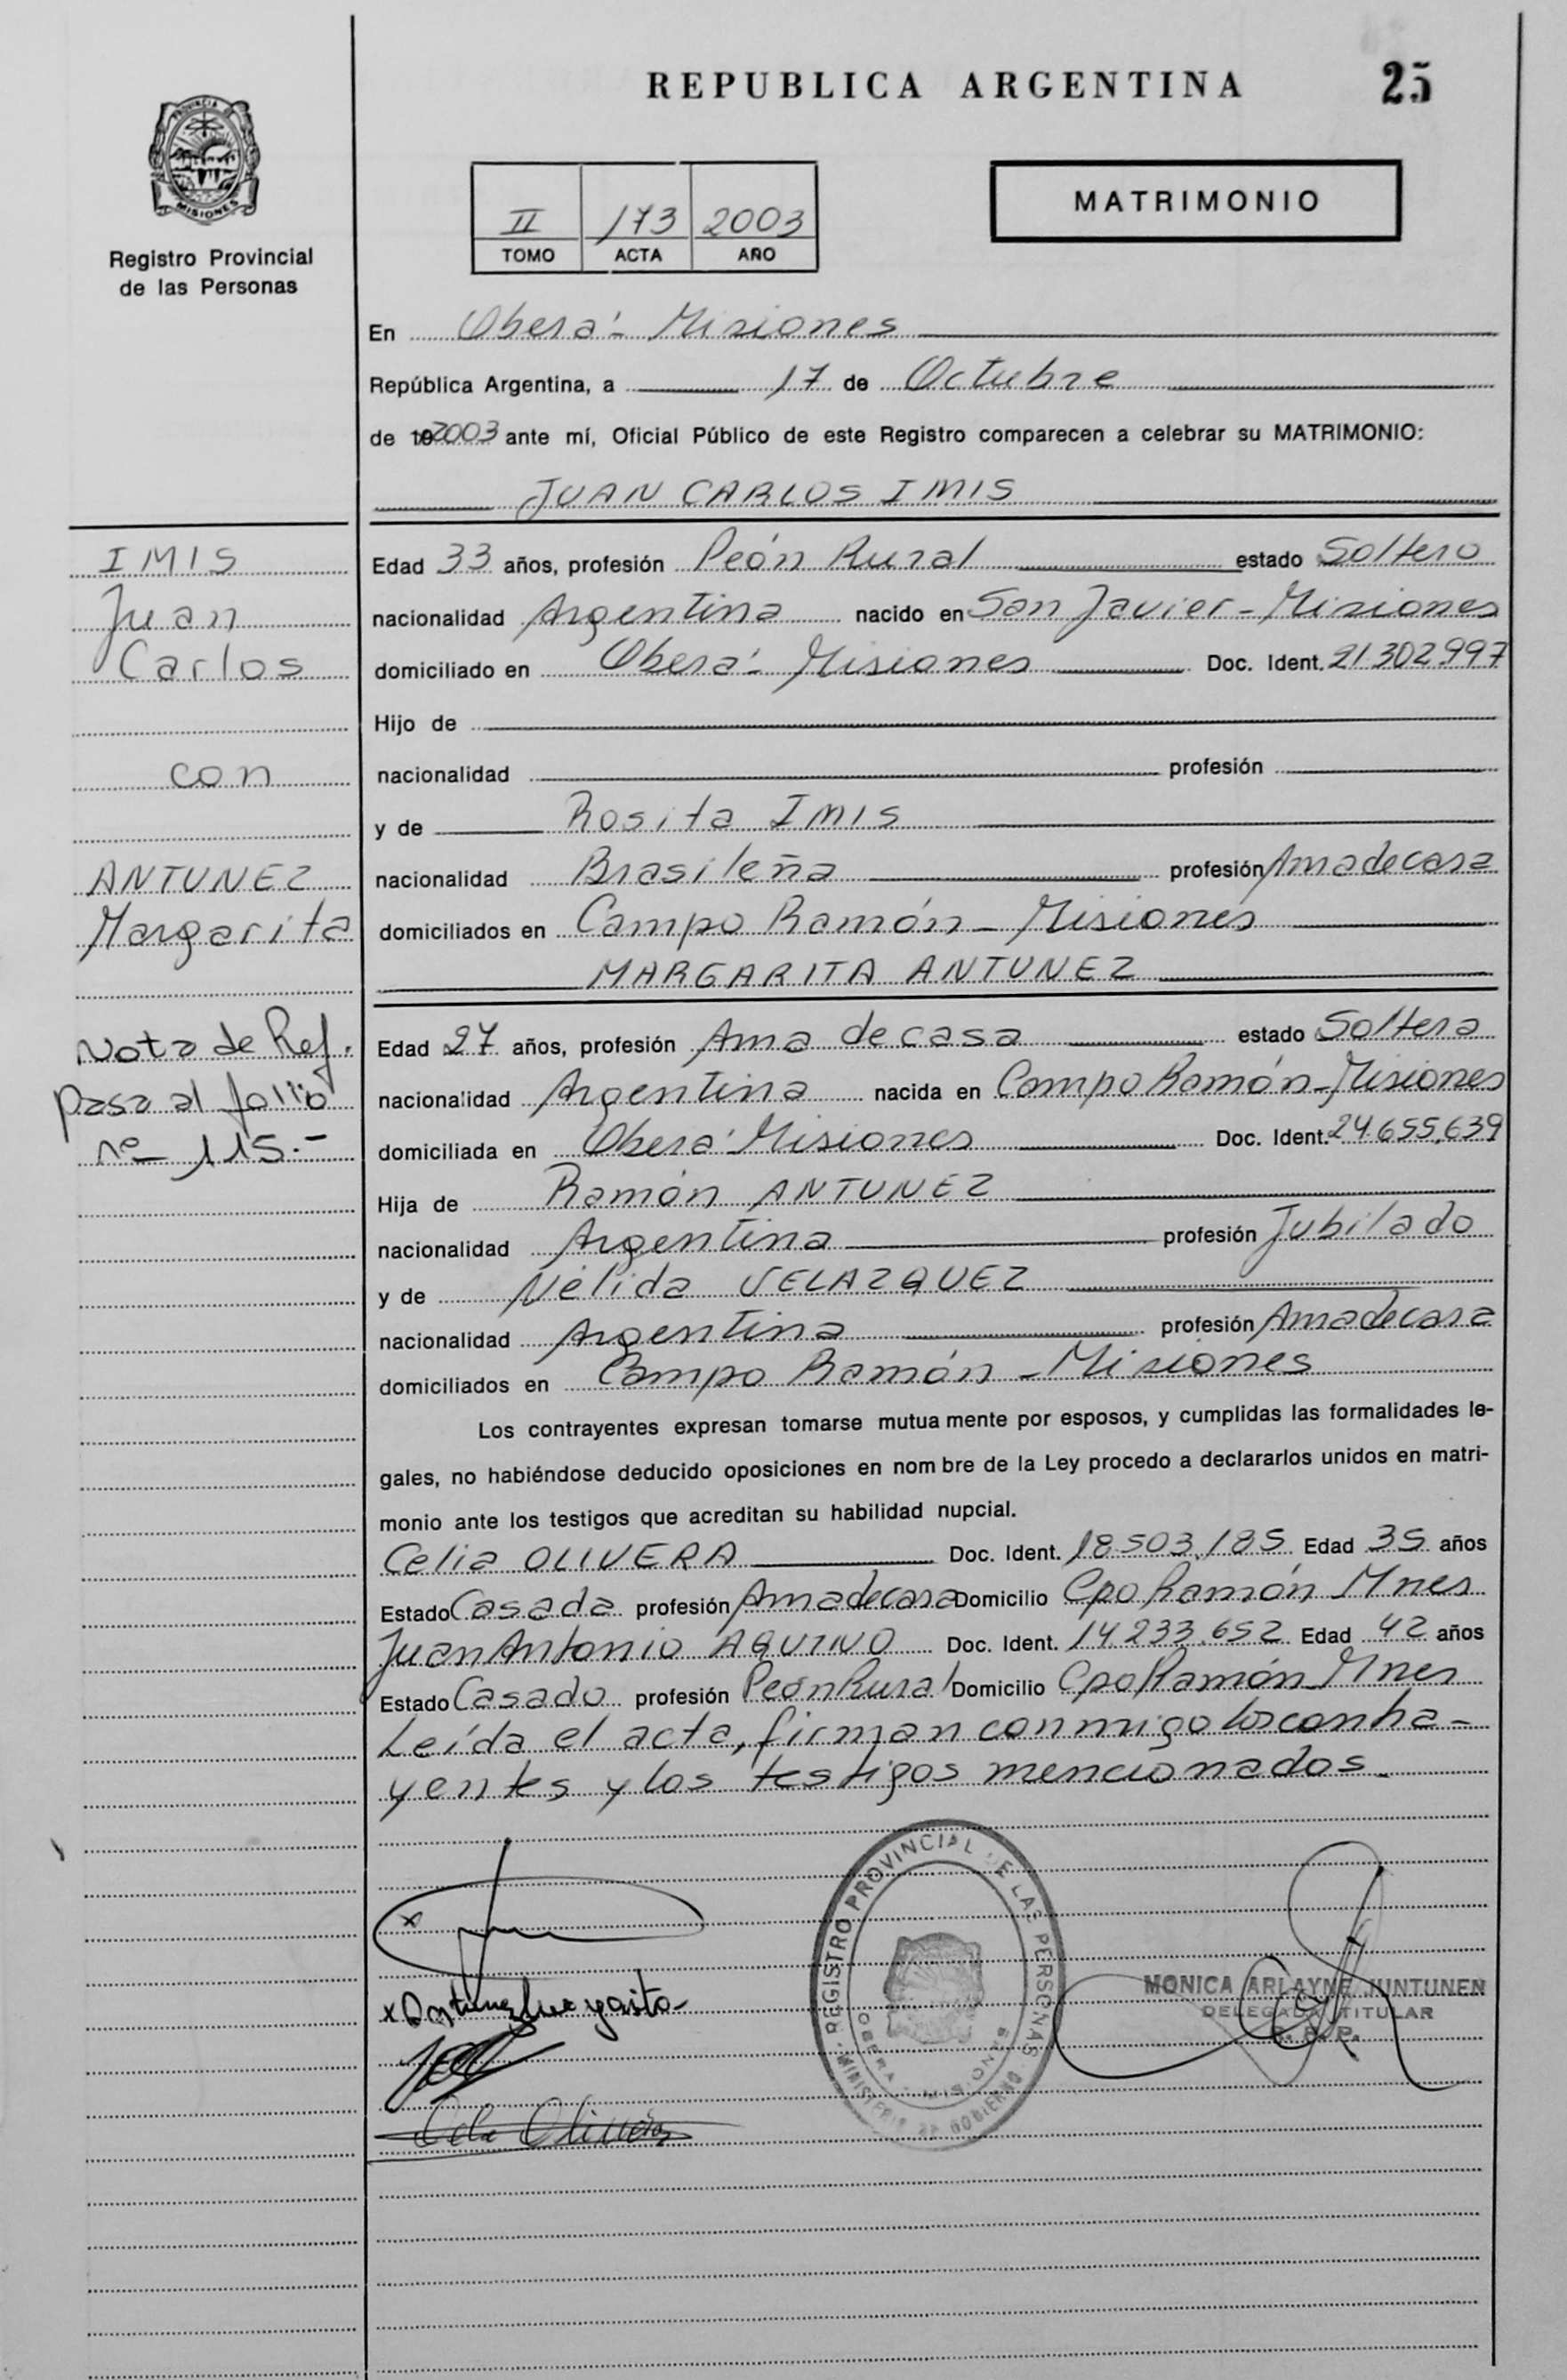 REPUBLICA ARGENTINA
25
PROVINCIA DE
MISIONES
Registro Provincial
de las Personas
II 173 2003
TOMO ACTA AÑO
MATRIMONIO
En Oberá - Misiones
República Argentina, a 17 de Octubre
de 19 2003 ante mí, Oficial Público de este Registro comparecen a celebrar su MATRIMONIO:
JUAN CARLOS IMIS
IMIS
Juan
Carlos
con
ANTUNEZ
Margarita
Nota de Ref.
pasa al folio
nº 115.-
Edad 33 años, profesión Peón Rural estado Soltero
nacionalidad Argentina nacido en San Javier - Misiones
domiciliado en Oberá - Misiones Doc. Ident. 21.302.997
Hijo de
nacionalidad profesión
y de Rosita IMIS
nacionalidad Brasileña profesión Ama de casa
domiciliados en Campo Ramón - Misiones
MARGARITA ANTUNEZ
Edad 27 años, profesión Ama de casa estado Soltera
nacionalidad Argentina nacida en Campo Ramón - Misiones
domiciliada en Oberá - Misiones Doc. Ident. 24.655.639
Hija de Ramón ANTUNEZ
nacionalidad Argentina profesión Jubilado
y de Nélida VELAZQUEZ
nacionalidad Argentina profesión Ama de casa
domiciliados en Campo Ramón - Misiones
Los contrayentes expresan tomarse mutuamente por esposos, y cumplidas las formalidades le-
gales, no habiéndose deducido oposiciones en nombre de la Ley procedo a declararlos unidos en matri-
monio ante los testigos que acreditan su habilidad nupcial.
Celia OLIVERA Doc. Ident. 18.503.185 Edad 35 años
Estado Casada profesión Ama de casa Domicilio Cpo Ramón Mnes
Juan Antonio AQUINO Doc. Ident. 14.233.652 Edad 42 años
Estado Casado profesión Peón Rural Domicilio Cpo Ramón Mnes
Leída el acta, firman conmigo los contra-
yentes y los testigos mencionados.
x
x Antunez Margarita
Celia Olivera
REGISTRO PROVINCIAL DE LAS PERSONAS
MINISTERIO DE GOBIERNO
OBERA
MONICA ARLAYNE JUNTUNEN
DELEGADA TITULAR
R. P. P.